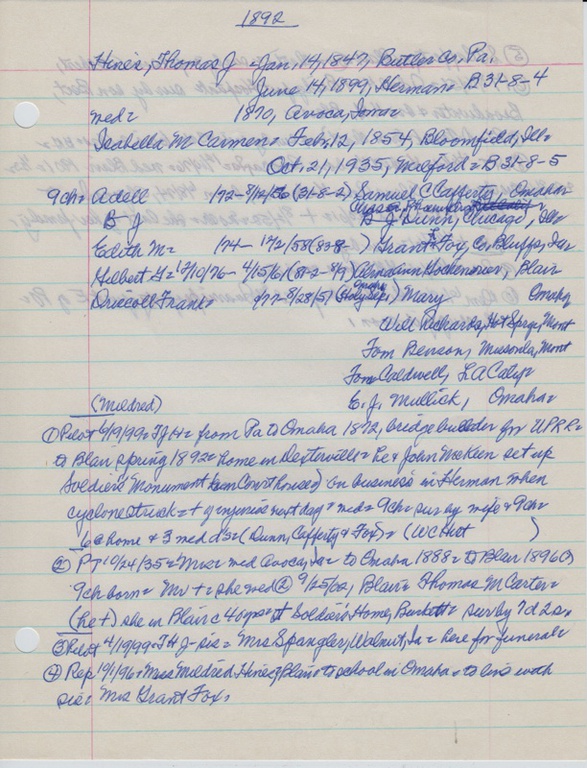 1892
Hines, Thomas J = Jan, 14, 1847, Butler Co, Pa,
June, 14, 1899, Herman = B 31-8-4
med = 1870, Avoca, Iowa =
Isabella M Carmen = Feb, 12, 1854, Bloomfield, Ill =
Oct, 21, 1935, Milford = B 31-8-5
9ch = Adell 172 - 8/12/56 (31-8-2) Samuel C Cafferty, Omaha
B J B J Dunn, Chicago, Ills
Edith M = 174 - 12/2/58 (83-8- ) Grant Fox, Co, Bluffs, Ia,
Gilbert G = 12/10/76 - 4/15/61 (81-2-8/9) Hockenmier, Blair
Driscoll Frank = 9/77 - 8/28/51 (Holy Sep,) Mary Omaha
Will Richards, Hot Sprgs, Mont
Tom Benson, Missoula, Mont
Tom Caldwell, LA Calif =
E. J. Mullick, Omaha =
(Mildred)
① Pilot 6/19/99 = TJH = from Pa to Omaha 1872, bridge builder for UPRR =
to Blair spring 1892 = home in Dexterville = he & John McKeen set up
Soldiers' Monument Courthouse) on business in Herman when
cyclone struck = + of injuries next day = med = 9ch = sur by wife & 9ch =
6 @ home & 3 med d's = (Dunn, Cafferty & Fox) = (WC Hist )
② PT 10/24/35 = Mrs = med Avoca, Ia = to Omaha 1888 = to Blair 1896
9ch born = Mr + = she wed ② 9/25/02, Blair = Thomas M Carter =
(he +) she in Blair c 40 yrs = @ Soldiers Home, Burkett = sur by 7d 2s =
③ Pilot 4/19/99 = TH J = sis = Mrs Spangler, Walnut, Ia = here for funeral =
④ Rep 10/1/96 = Miss Mildred Hines, Blair = to school in Omaha = to live with
sis = Mrs Grant Fox =